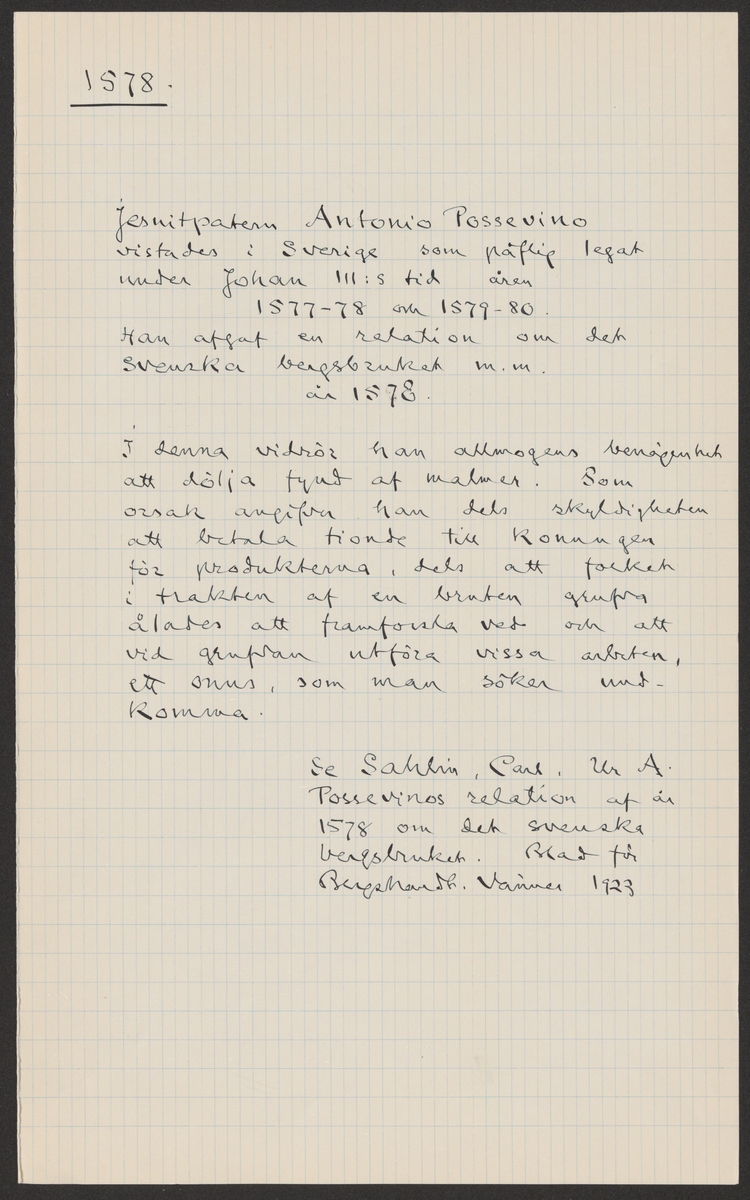 1578.
Jesuitpatern Antonio Possevino
vistades i Sverige som påflig legat
under Johan III:s tid åren
1577-78 och 1579-80.
Han afgaf en relation om det
svenska bergsbruket m.m.
år 1578.
I denna vidrör han allmogens benägenhet
att dölja fynd af malmer. Som
orsak angifver han dels skyldigheten
att betala tionde till konungen
för produkterna, dels att folket
i trakten af en bruten grufva
ålades att framforsla ved och att
vid grufvan utföra vissa arbeten,
ett onus, som man söker und-
komma.
Se Sahlin, Carl. Ur A.
Possevinos relation af år
1578 om det svenska
bergsbruket. Blad för
Bergshandt. Vänner 1923